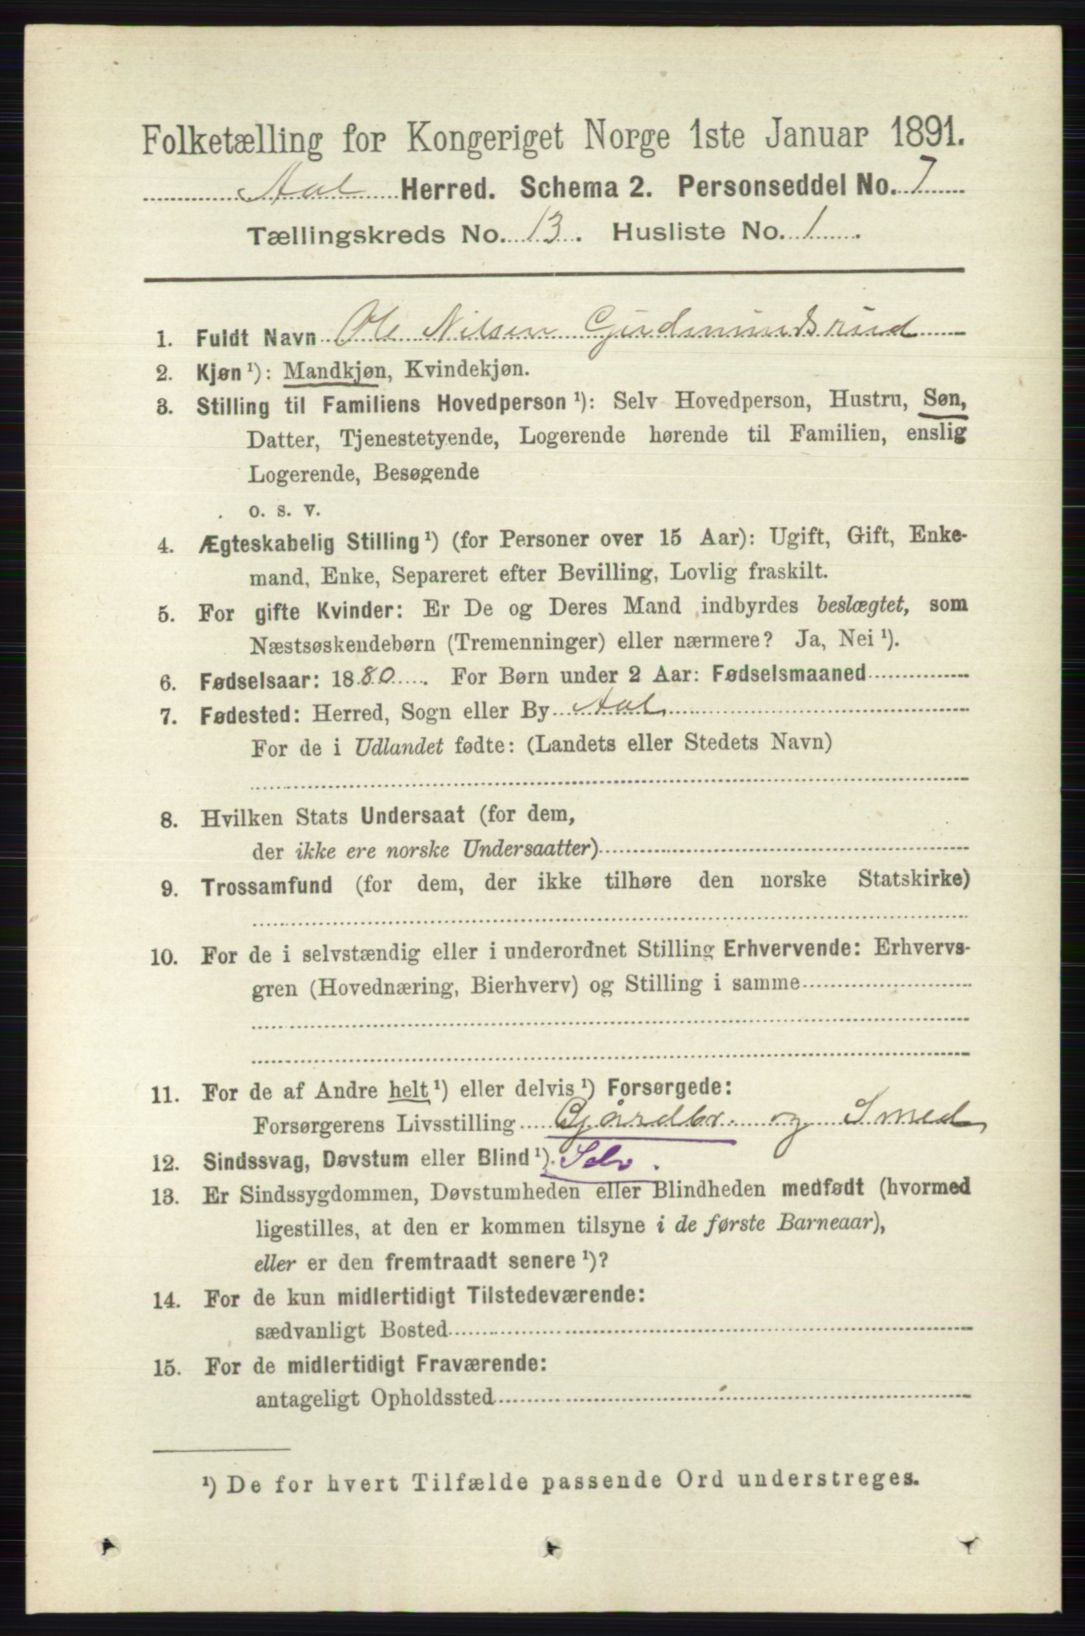 Folketælling for Kongeriget Norge 1ste Januar 1891.
Aal Herred. Schema 2. Personseddel No. 7
Tællingskreds No. 13. Husliste No. 1.
1. Fuldt Navn Ole Nilsen Gudmundsrud
2. Kjøn ¹): Mandkjøn, Kvindekjøn.
3. Stilling til Familiens Hovedperson ¹): Selv Hovedperson, Hustru, Søn,
Datter, Tjenestetyende, Logerende hørende til Familien, enslig
Logerende, Besøgende
o. s. v.
4. Ægteskabelig Stilling ¹) (for Personer over 15 Aar): Ugift, Gift, Enke-
mand, Enke, Separeret efter Bevilling, Lovlig fraskilt.
5. For gifte Kvinder: Er De og Deres Mand indbyrdes beslægtet, som
Næstsøskendebørn (Tremenninger) eller nærmere? Ja, Nei ¹).
6. Fødselsaar: 1880. For Børn under 2 Aar: Fødselsmaaned
7. Fødested: Herred, Sogn eller By Aal
For de i Udlandet fødte: (Landets eller Stedets Navn)
8. Hvilken Stats Undersaat (for dem,
der ikke ere norske Undersaatter)
9. Trossamfund (for dem, der ikke tilhøre den norske Statskirke)
10. For de i selvstændig eller i underordnet Stilling Erhvervende: Erhvervs-
gren (Hovednæring, Bierhverv) og Stilling i samme
11. For de af Andre helt ¹) eller delvis ¹) Forsørgede:
Forsørgerens Livsstilling Gårdbr og Smed
12. Sindssvag, Døvstum eller Blind ¹). Selv.
13. Er Sindssygdommen, Døvstumheden eller Blindheden medfødt (hvormed
ligestilles, at den er kommen tilsyne i de første Barneaar),
eller er den fremtraadt senere ¹)?
14. For de kun midlertidigt Tilstedeværende:
sædvanligt Bosted
15. For de midlertidigt Fraværende:
antageligt Opholdssted
¹) De for hvert Tilfælde passende Ord understreges.